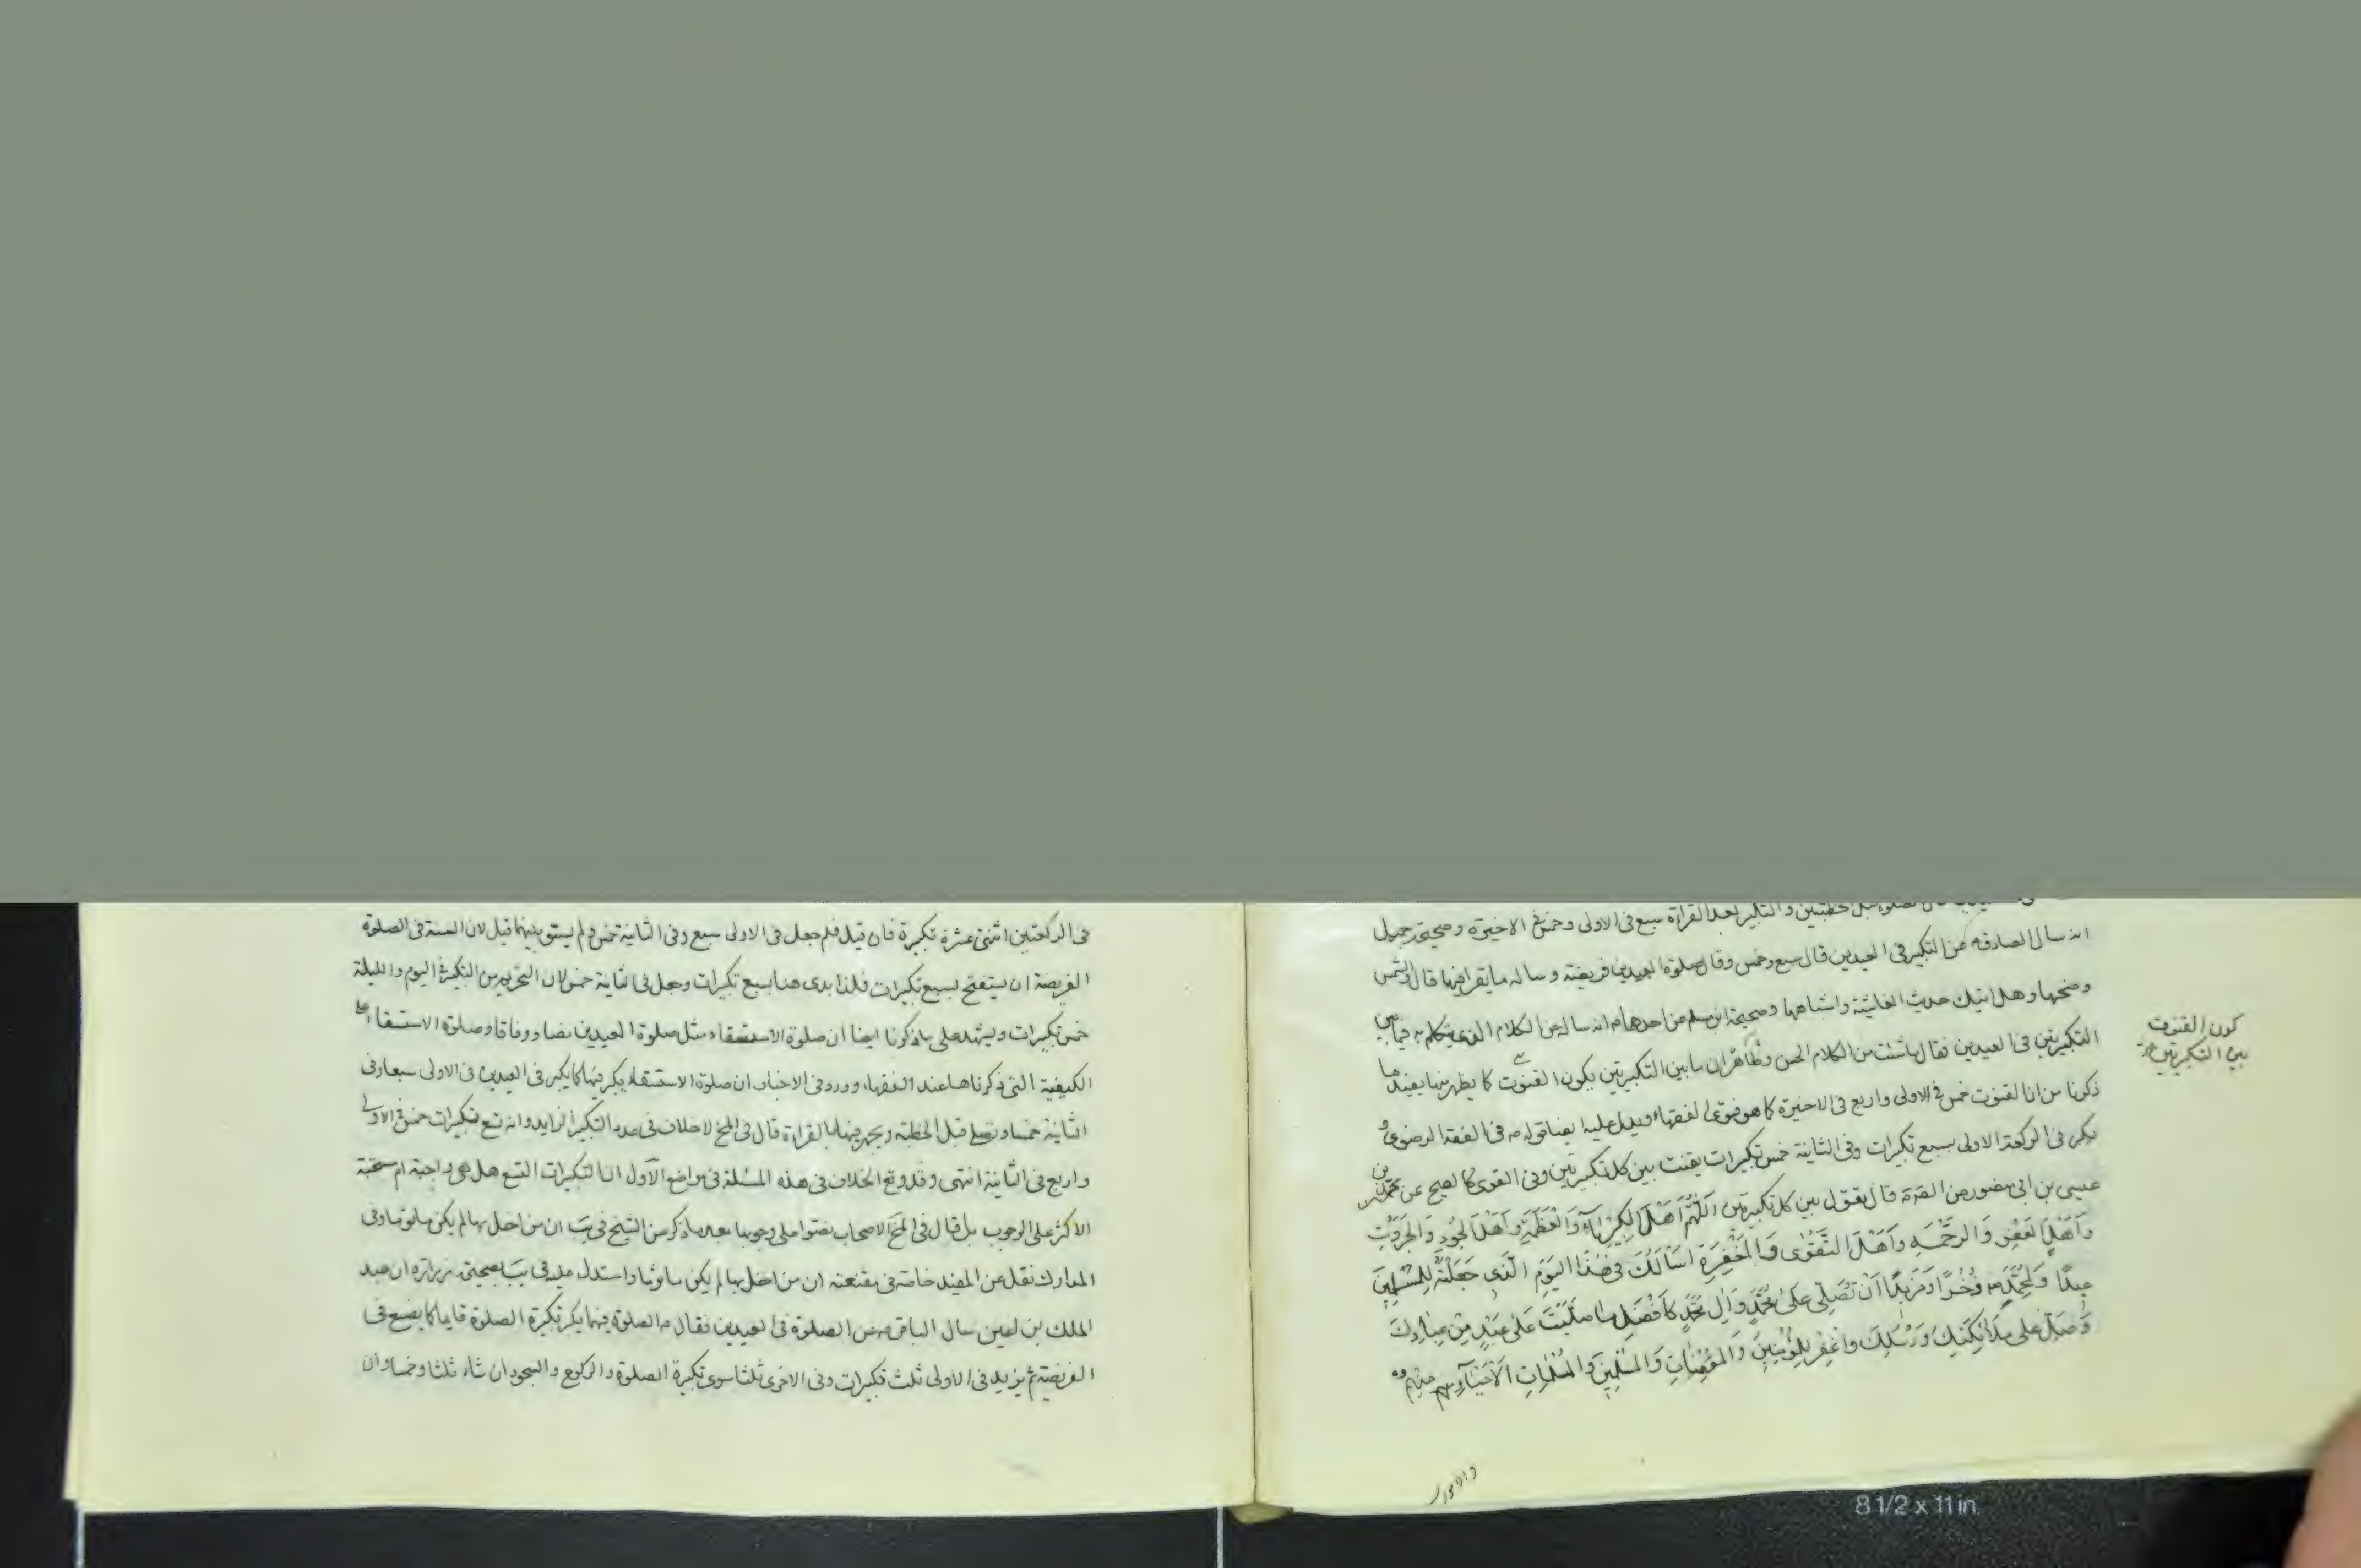 الصلوة قبل الخطبتين والتكبير بعد القراءة سبع فى الاولى وخمس فى الاخيرة وصحيحة جميل
انه سال الصادق من التكبير فى العيدين قال سبع وخمس وقال صلوة العيدين فريضة وساله ما يقرا فيها قال والشمس
وضحيها وهل اتيك حديث الغاشية واشباهها وصحيحة ابن مسلم من احدهما انه ساله عن الكلام الذى يتكلم به فيما بين
التكبيرتين فى العيدين فقال ما شئت من الكلام الحسن وظاهر ان ما بين التكبيرتين يكون القنوت كما يظهر منها يفيد ما
ذكرنا من ان القنوت خمس فى الاولى واربع فى الاخيرة كما هو فتوى الفقهاء ويدل عليه ايضا قوله فى الفقه الرضوى و
يكبر فى الركعة الاولى بسبع تكبيرات وفى الثانية خمس تكبيرات يقنت بين كل تكبيرتين وفى القوى كالصحيح عن محمد بن
عيسى بن ابى منصور عن قال تقول بين كل تكبيرتين اَللّهُمَّ اَهْلَ الكِبْرِيَاءِ وَالْعَظَمَةِ وَاَهْلَ الجُودِ وَالجَبَرُوتِ
وَاَهْلَ الْعَفْوِ وَالرَّحْمَةِ وَاَهْلَ التَّقْوٰى وَالْمَغْفِرَةِ اَسْاَلُكَ فِى هٰذَا اليَوْمِ الَّذِى جَعَلْتَهُ لِلْمُسْلِمِينَ
عِيدًا وَلِمُحَمَّدٍ ص ذُخْرًا وَمَزِيدًا اَنْ تُصَلِّىَ عَلىٰ مُحَمَّدٍ وَآلِ مُحَمَّدٍ كَاَفْضَلِ مَا صَلَّيْتَ عَلىٰ عَبْدٍ مِنْ عِبادِكَ
وَصَلِّ عَلى مَلٰائِكَتِكَ وَرُسُلِكَ وَاغْفِرْ لِلْمُؤْمِنِينَ وَالْمُؤْمِنَاتِ وَالْمُسْلِمِينَ وَالْمُسْلِمَاتِ الْاَحْيَاءِ مِنْهُمْ
والاموات
كون القنوت
بين التكبيرتين
فى الركعتين اثنتى عشرة تكبيرة فان قيل فلم جعل فى الاولى سبع وفى الثانية خمس ولم يستو بينهما قيل لان السنة فى الصلوة
الفريضة ان يستفتح بسبع تكبيرات فلذا بدى هنا بسبع تكبيرات وجعل فى الثانية خمس لان التحريم من التكبير فى اليوم والليلة
خمس تكبيرات ويشهد على ما ذكرنا ايضا ان صلوة الاستسقاء مثل صلوة العيدين نصا ووفاقا وصلوة الاستسقاء على
الكيفية التى ذكرناها عند الفقهاء وورد فى الاخبار ان صلوة الاستسقاء يكبر فيها كما يكبر فى العيدين فى الاولى سبعا وفى
الثانية خمسا ويصلى قبل الخطبة ويجهر فيها بالقراءة قال فى المخ لا خلاف فى عدد التكبير الزايد وانه تسع تكبيرات خمس فى الاولى
واربع فى الثانية انتهى وقد وقع الخلاف فى هذه المسئلة فى مواضع الاول ان التكبيرات التسع هل هى واجبة ام مستحبة
الاكثر على الوجوب بل قال فى المخ الاصحاب نصوا على وجوبها بعد ما ذكر من الشيخ فى يب ان من اخل بها لم يكن ماثوما وفى
المدارك نقل عن المفيد خاصة فى مقنعته ان من اخل بها لم يكن ماثوما واستدل عليه فى يب بصحيحة زرارة ان عبد
الملك بن اعين سال الباقر عن الصلوة فى العيدين فقال الصلوة فيهما يكبر تكبيرة الصلوة قايما كما يصنع فى
الفريضة ثم يزيد فى الاولى ثلث تكبيرات وفى الاخرى ثلثا سوى تكبيرة الصلوة والركوع والسجود ان شاء ثلثا وخمسا وان
8 1/2 x 11 in.